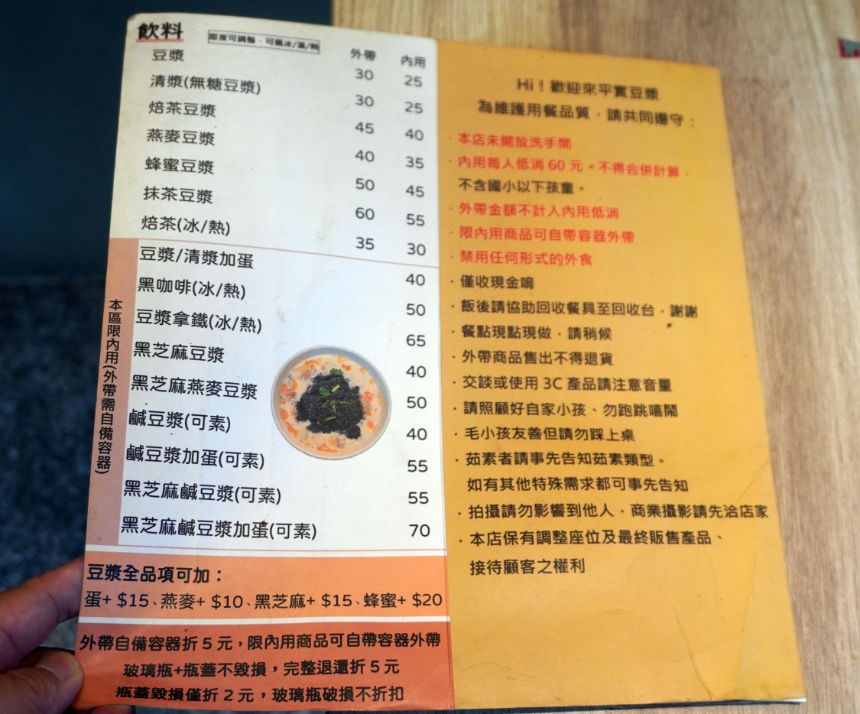 飲料 甜度可調整，可做冰/溫/熱
外帶 內用
豆漿 30 25
清漿(無糖豆漿) 30 25
焙茶豆漿 45 40
燕麥豆漿 40 35
蜂蜜豆漿 50 45
抹茶豆漿 60 55
焙茶(冰/熱) 35 30
本區限內用(外帶需自備容器)
豆漿/清漿加蛋 40
黑咖啡(冰/熱) 50
豆漿拿鐵(冰/熱) 65
黑芝麻豆漿 40
黑芝麻燕麥豆漿 50
鹹豆漿(可素) 40
鹹豆漿加蛋(可素) 55
黑芝麻鹹豆漿(可素) 55
黑芝麻鹹豆漿加蛋(可素) 70
豆漿全品項可加：
蛋+ $15、燕麥+ $10、黑芝麻+ $15、蜂蜜+ $20
外帶自備容器折 5 元，限內用商品可自帶容器外帶
玻璃瓶+瓶蓋不毀損，完整退還折 5 元
瓶蓋毀損僅折 2 元，玻璃瓶破損不折扣
Hi！歡迎來平實豆漿
為維護用餐品質，請共同遵守：
·本店未開放洗手間
·內用每人低消 60 元。不得合併計算，
不含國小以下孩童。
·外帶金額不計入內用低消
·限內用商品可自帶容器外帶
·禁用任何形式的外食
·僅收現金唷
·飯後請協助回收餐具至回收台，謝謝
·餐點現點現做，請稍候
·外帶商品售出不得退貨
·交談或使用 3C 產品請注意音量
·請照顧好自家小孩、勿跑跳嘻鬧
·毛小孩友善但請勿踩上桌
·茹素者請事先告知茹素類型。
如有其他特殊需求都可事先告知
·拍攝請勿影響到他人，商業攝影請先洽店家
·本店保有調整座位及最終販售產品、
接待顧客之權利